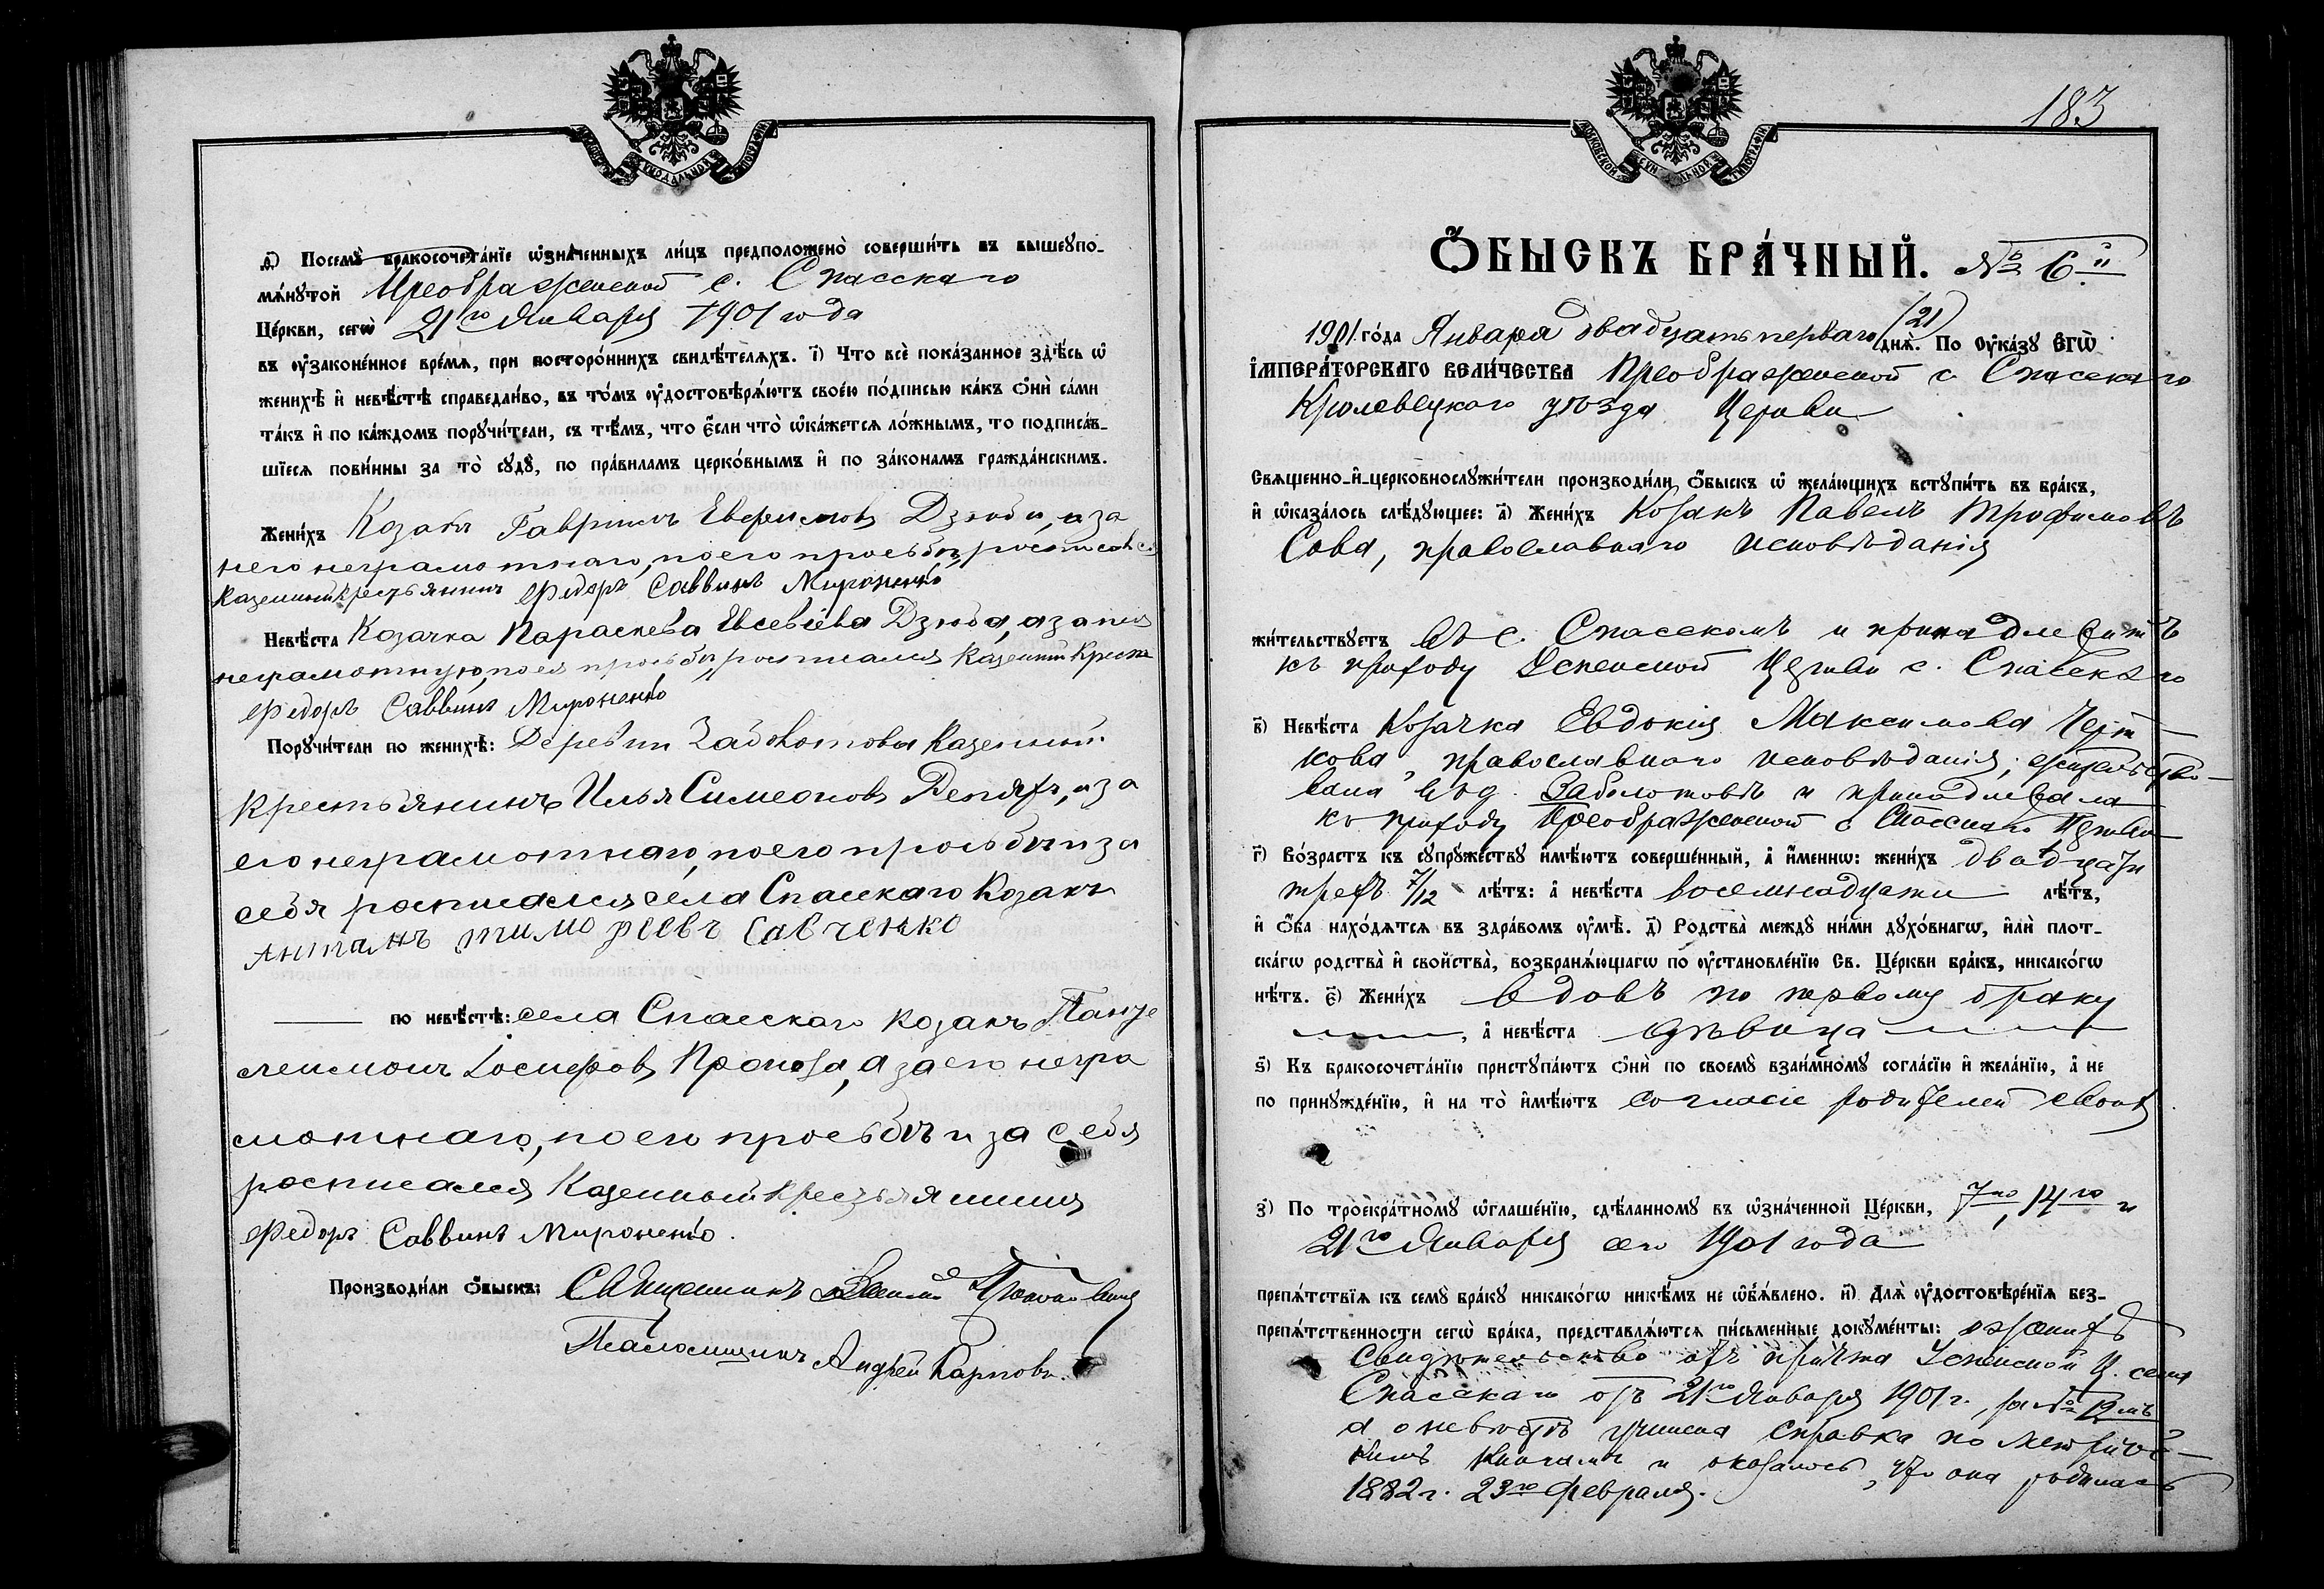 МОСКОВСКОЙ СѴНОДАЛЬНОЙ ТИПОГРАФІИ
ѳ҃) Посемꙋ̀ бракосочета́нїе ѡ҆зна́ченныхъ ли́цъ предположено̀ соверши́ть въ вышеꙋпо-
мѧ́нꙋтой Преображенской с. Спасскаго
Це́ркви, сегѡ̀ 21го Января 1901 года
въ ѹ҆законе́нное вре́мѧ, при посторо́ннихъ свидѣ́телѧхъ. і҃) Что всѐ пока́занное здѣ́сь ѡ҆
женихѣ̀ и҆ невѣ́стѣ справедли́во, въ то́мъ ѹ҆достовѣрѧ́ютъ свое́ю по́дписью ка́къ ѻ҆нѝ са́ми
та́къ и҆ по ка́ждомъ порꙋчи́тели, съ тѣ́мъ, что є҆́сли что̀ ѡ҆ка́жетсѧ ло́жнымъ, то подписа́в-
шїесѧ пови́нны за то̀ сꙋдꙋ̀, по пра́виламъ церко́внымъ и҆ по зако́намъ гражда́нскимъ.
Жени́хъ Козакъ Гавриилъ Евфимовъ Дзюба, а за
него неграмотнаго, по его просьбѣ, росписался
Казенный крестьянинъ Федоръ Саввинъ Мироненко
Невѣ́ста Козачка Параскева Евсевіева Дзюба, а за нея
неграмотную, по ея просьбѣ, росписался Казенный Кресть
Федоръ Саввинъ Мироненко
Порꙋчи́тели по женихѣ̀: Деревни Заболотова Казенный
крестьянинъ Илья Симеоновъ Репяхъ, а за
его неграмотнаго, по его просьбѣ и за
себя росписался села Спасскаго Козакъ
Антанъ тимофеевъ Савченко
по невѣ́стѣ: села Спасскаго козакъ Панте
леимонъ Іосифовъ Проноза, а за его негра
мотнаго, по его просьбѣ и за себя
росписался Казенный крестьянинъ
Федоръ Саввинъ Мироненко.
Производи́ли ѻ҆́быскъ: Священникъ Василій
Псаломщикъ Андрей Карповъ.
183
МОСКОВСКОЙ СѴНОДАЛЬНОЙ ТИПОГРАФІИ
Ѻ҆́БЫСКЪ БРА́ЧНЫЙ. № 6й
1901 го́да Января двадцать перваго (21) днѧ̀. По ѹ҆ка́зꙋ Є҆ГѠ̀
І҆МПЕРА́ТОРСКАГО ВЕЛИ́ЧЕСТВА Преображенской с. Спасскаго
Кролевецкаго уѣзда Церкви
Свѧщенно-и҆-церковнослꙋжи́тели производи́ли ѻ҆́быскъ ѡ҆ жела́ющихъ встꙋпи́ть въ бра́къ,
и҆ ѡ҆каза́лось слѣ́дꙋющее: а҃) Жени́хъ Козакъ Павелъ Трофимовъ
Сова, православнаго исповѣданія
жи́тельствꙋетъ въ с. Спасскомъ и принадлежитъ
къ приходу Успенской Церкви с. Спасскаго
в҃) Невѣ́ста Козачка Евдокія Максимова Черт-
кова, православнаго исповѣданія, жительство-
вала въ д. Заболотовѣ и принадлежала
къ приходу Преображенской с. Спасскаго Церкви
г҃) Во́зрастъ къ сꙋпрꙋ́жествꙋ и҆мѣ́ютъ соверше́нный, а҆ и҆́меннѡ: жени́хъ двадцати
трехъ 7/12 лѣ́тъ: а҆ невѣ́ста восемнадцати лѣ́тъ,
и҆ ѻ҆́ба нахо́дѧтсѧ въ здра́вомъ ѹ҆мѣ̀. д҃) Родства̀ междꙋ ни́ми дꙋхо́внагѡ, и҆лѝ плот-
ска́гѡ родства̀ и҆ свойства̀, возбранѧ́ющагѡ по ѹ҆становле́нїю Св. Це́ркви бра́къ, никако́гѡ
нѣ́тъ. є҃) Жени́хъ вдовъ по первому браку
, а҆ невѣ́ста дѣвица
ѕ҃) Къ бракосочета́нїю пристꙋпа́ютъ ѻ҆нѝ по своемꙋ̀ взаи́мномꙋ согла́сїю и҆ жела́нїю, а҆ не
по принꙋжде́нїю, и҆ на то̀ и҆мѣ́ютъ согласіе родителей своихъ
з҃) По троекра́тномꙋ ѡ҆глаше́нїю, сдѣ́ланномꙋ въ ѡ҆зна́ченной Це́ркви, 7го, 14го и
21го Января сего 1901 года
препѧ́тствїѧ къ семꙋ̀ бра́кꙋ никако́гѡ никѣ́мъ не ѡ҆б̾ѧ́влено. и҃) Длѧ̀ ѹ҆достовѣре́нїѧ без-
препѧ́тственности сегѡ̀ бра́ка, представлѧ́ютсѧ пи́сьменные докꙋме́нты: о женихѣ
свидѣтельство отъ причта Успенской Ц. села
Спасскаго отъ 21го Января 1901 г., за № 12мъ
а о невѣстѣ учинена справка по метриче-
скимъ книгамъ и оказалось, что она родилась
1882 г. 23го Февраля.